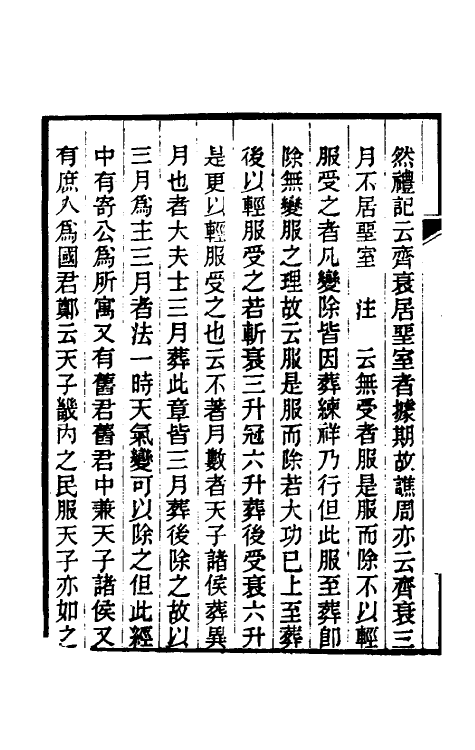 然禮記云齊衰居堊室者據期故譙周亦云齊衰三
月不居堊室　注　云無受者服是服而除不以輕
服受之者凡變除皆因葬練祥乃行但此服至葬卽
除無變服之理故云服是服而除若大功已上至葬
後以輕服受之若斬衰三升冠六升葬後受衰六升
是更以輕服受之也云不著月數者天子諸侯葬異
月也者大夫士三月葬此章皆三月葬後除之故以
三月爲主三月者法一時天氣變可以除之但此經
中有寄公爲所寓又有舊君舊君中兼天子諸侯又
有庶人爲國君鄭云天子畿內之民服天子亦如之